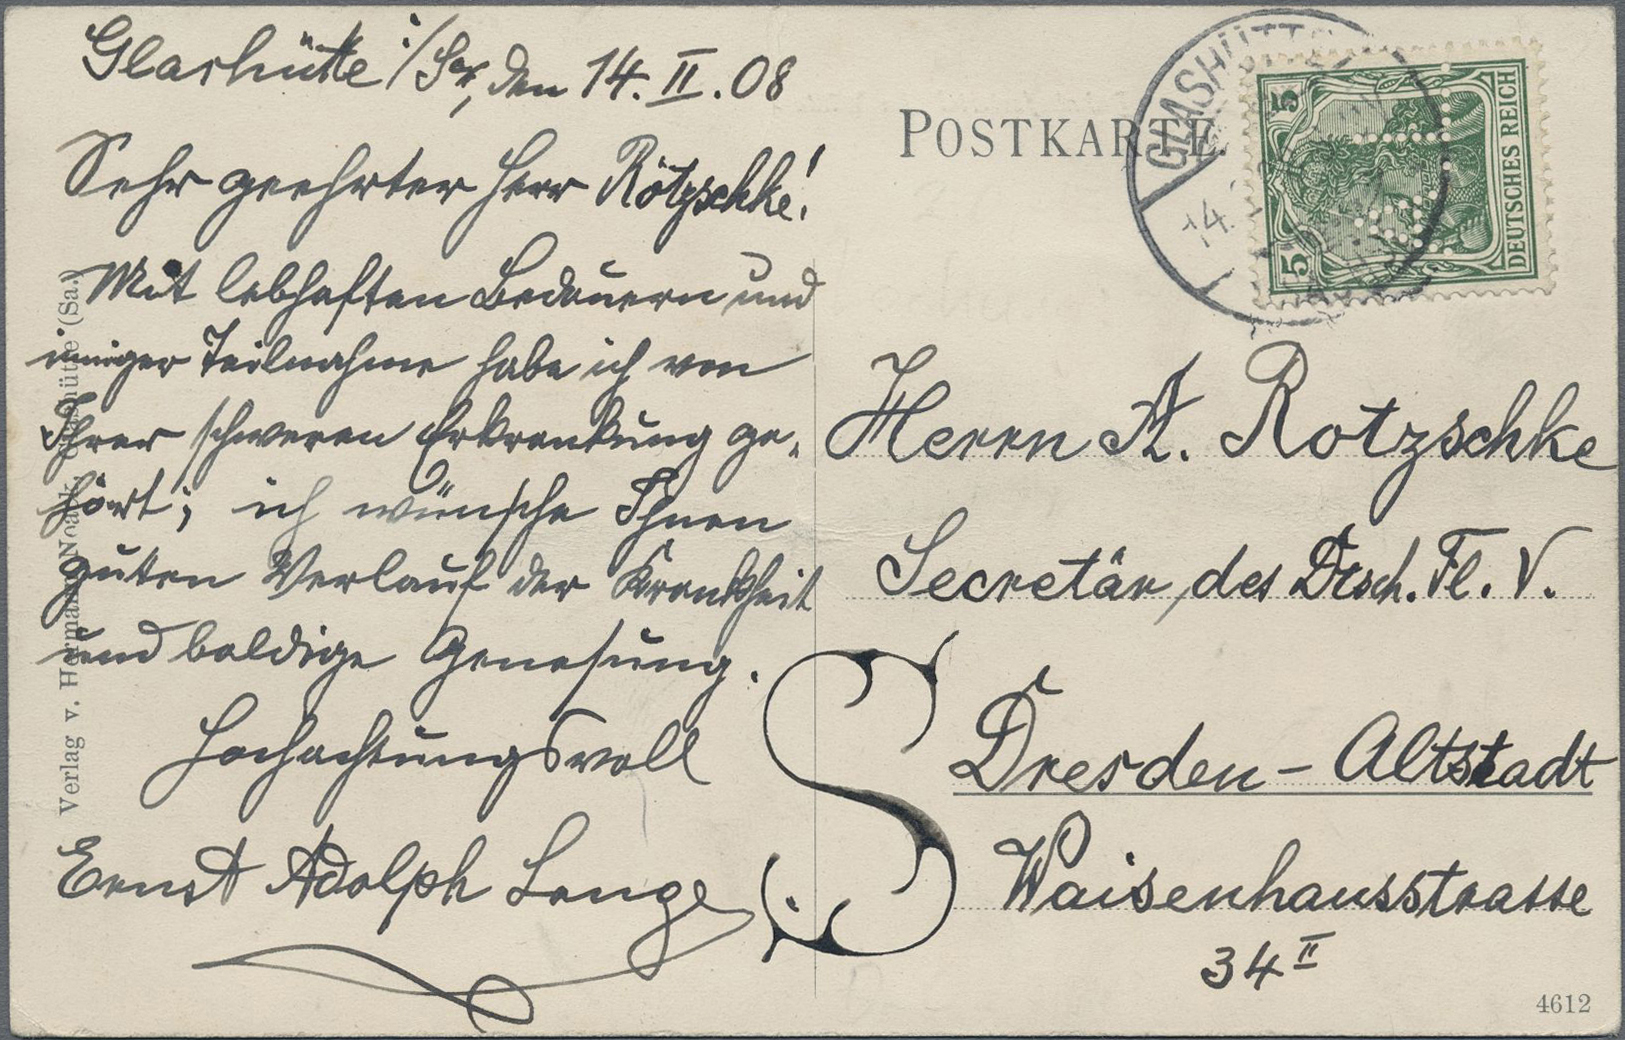 Glashütte i/Sa, den 14. II. 08
Sehr geehrter Herr Rötzschke!
Mit lebhaften Bedauern und
inniger Teilnahme habe ich von
Ihrer schweren Erkrankung ge-
hört; ich wünsche Ihnen
guten Verlauf der Krankheit
und baldige Genesung.
Hochachtungsvoll
Ernst Adolph Lange
Verlag v. Hermann Noack, Glashütte (Sa.)
POSTKARTE.
GLASHÜTTE
14.
5
5
DEUTSCHES REICH
Herrn A. Rotzschke
Secretär des Dtsch. Fl. V.
S
Dresden-Altstadt
Waisenhausstrasse
34 II
4612